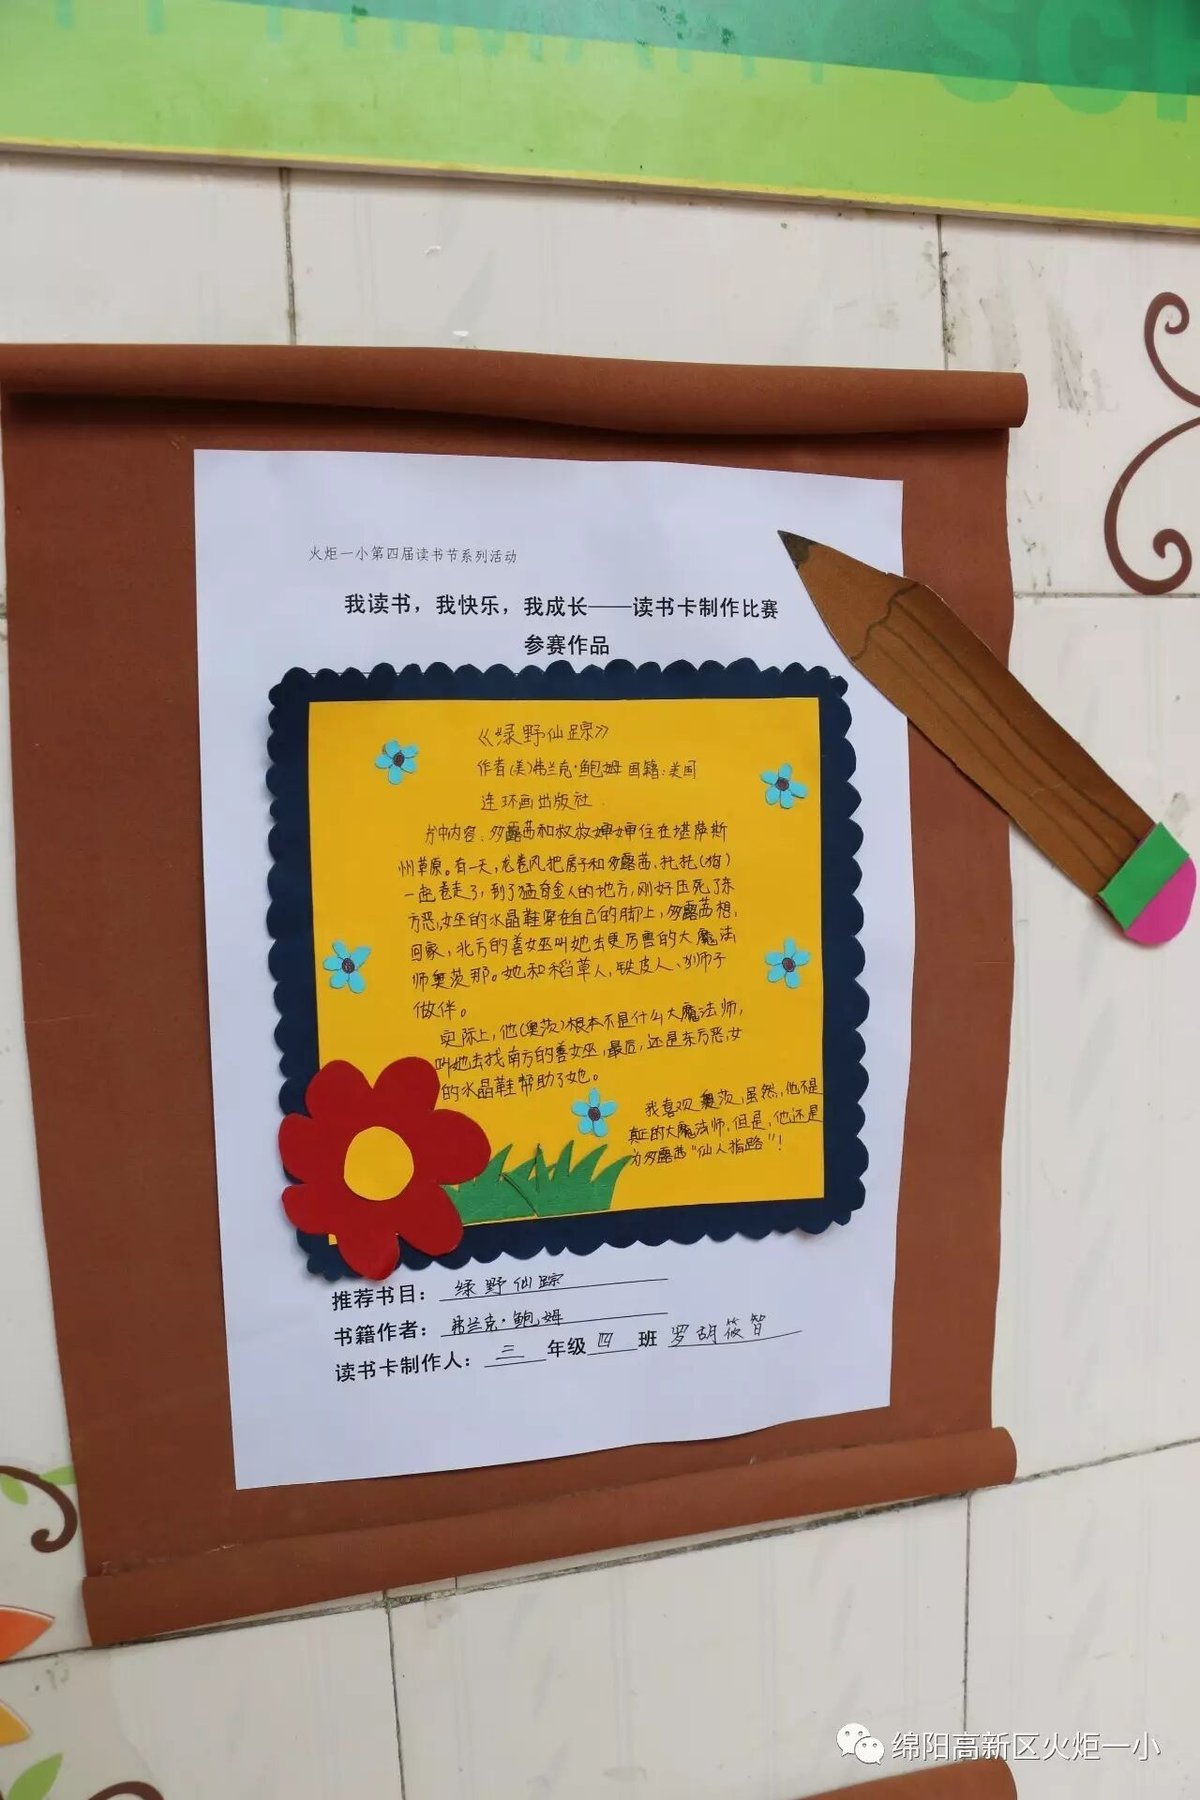 SC
火炬一小第四届读书节系列活动
我读书，我快乐，我成长——读书卡制作比赛
参赛作品
《绿野仙踪》
作者(美)弗兰克·鲍姆 国籍:美国
连环画出版社
书中内容、多露茜和叔叔婶婶住在堪萨斯
州草原。有一天,龙卷风把房子和多露茜、托托(狗)
一起卷走了,到了猛奇金人的地方,刚好压死了东
方恶女巫的水晶鞋穿在自己的脚上,多露茜想,
回家,北方的善女巫叫她去更厉害的大魔法
师奥茨那。她和稻草人,铁皮人、狮子
做伴。
实际上,他(奥茨)根本不是什么大魔法师,
叫她去找南方的善女巫,最后,还是东方恶女
的水晶鞋帮助了她。
我喜欢奥茨,虽然,他不是
真正的大魔法师,但是,他还是
为多露茜“仙人指路”!
推荐书目：绿野仙踪
书籍作者：弗兰克·鲍姆
读书卡制作人：三年级四班 罗胡筱智
绵阳高新区火炬一小